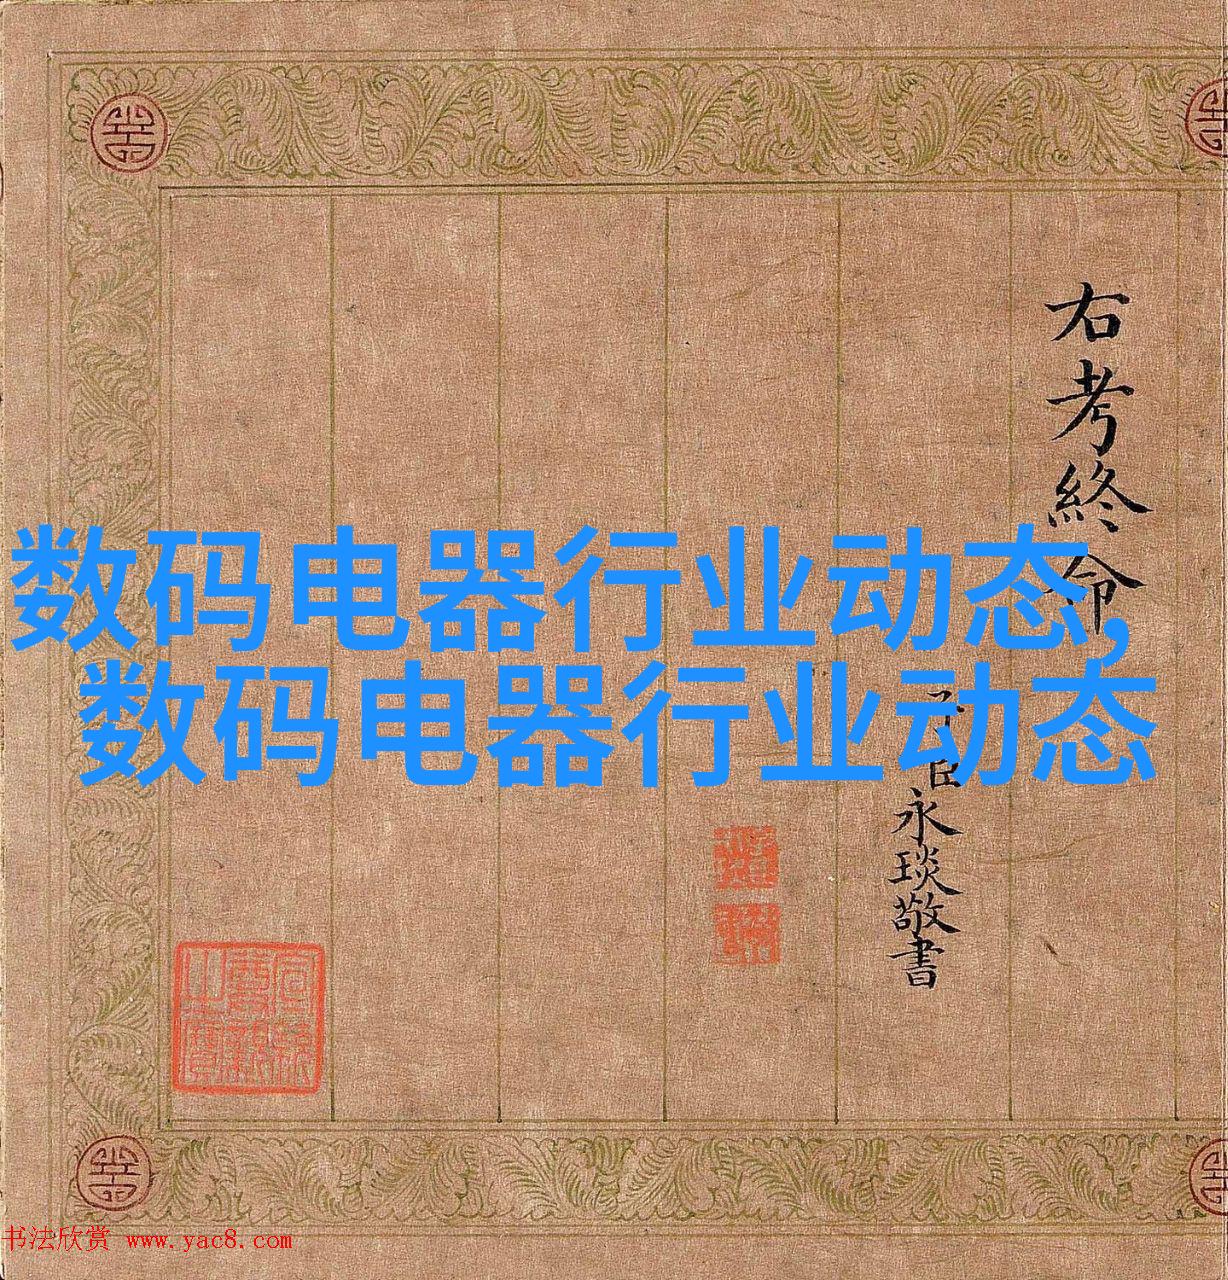 右考終命
子臣永琰敬書
数码电器行业动态,
数码电器行业动态
书法欣赏 www.yac8.com